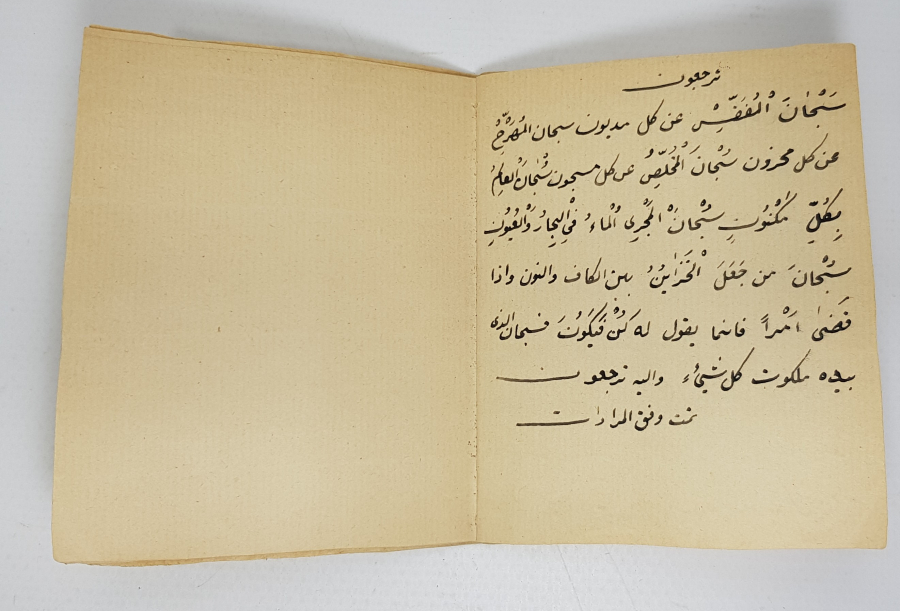 ترجعون
سُبْحَانَ الْمُنَفِّسْ عن كل مديون سبحان الْمُفَرِّحْ
عن كل محزون سُبْحَانَ الْمُخَلِّصُ عن كل مسجون سُبْحَانَ الْعَالِمُ
بِكُلِّ مَكْنُونِ سُبْحَانَ الْمُجْرِى الْمَاءُ فِي الْبِحَارُ وَالْعُيُونِ
سُبْحَانَ من جَعَلَ الْخَزَايِنُ بين الكاف والنون واذا
قَضَىٰ اَمْرًا فانما يقول له كُنْ فَيَكُونَ فسبحان الذى
بيده ملكوت كل شَيْءٍ واليه ترجعون
تمت وفق المرادات